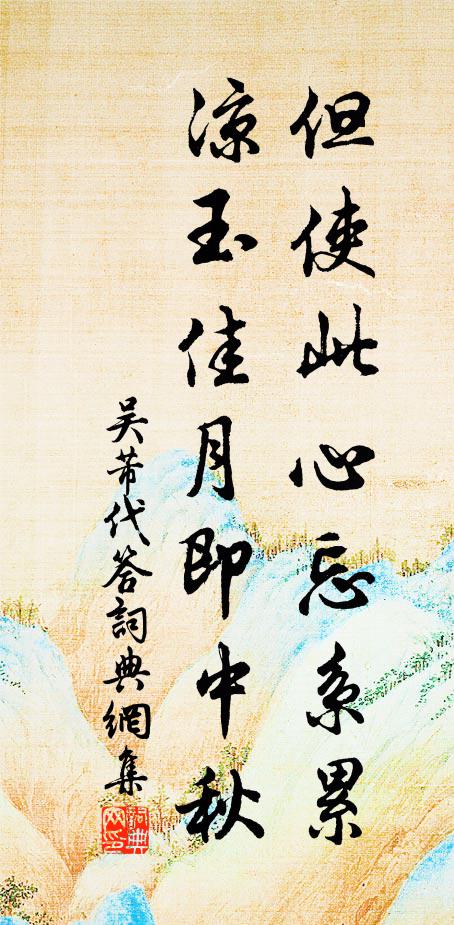 但使此心忘系累
凉玉佳月即中秋
吴芾代答詞典網集
詞典